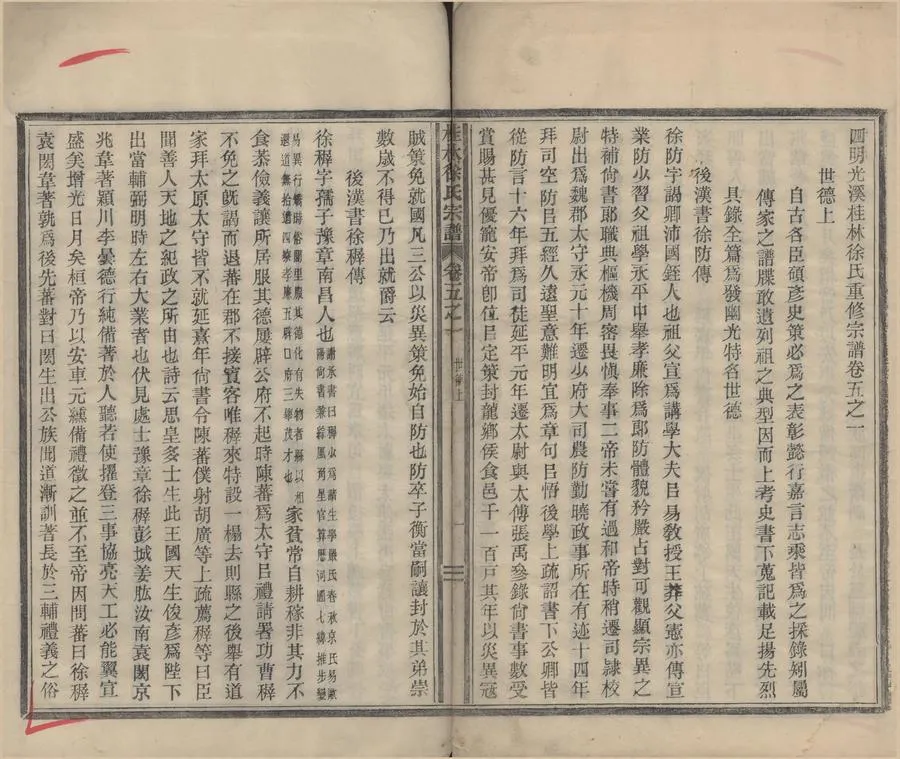 四明光溪桂林徐氏重修宗譜卷五之一
世德上
自古名臣碩彥史策必爲之表彰懿行嘉言志乘皆爲之採錄矧屬
傳家之譜牒敢遺列祖之典型因而上考史書下蒐記載足揚先烈
具錄全篇爲發幽光特名世德
後漢書徐防傳
徐防字謁卿沛國銍人也祖父宣爲講學大夫㠯易敎授王莽父憲亦傳宣
業防少習父祖學永平中舉孝廉除爲郞防體貌矜嚴占對可觀顯宗異之
特補尙書郞職典樞機周密畏愼奉事二帝未嘗有過和帝時稍遷司隸校
尉出爲魏郡太守永元十年遷少府大司農防勤曉政事所在有迹十四年
拜司空防㠯五經久遠聖意難明宜爲章句㠯悟後學上疏詔書下公卿皆
從防言十六年拜爲司徒延平元年遷太尉與太傅張禹參錄尙書事數受
賞賜甚見優寵安帝卽位㠯定策封龍鄉侯食邑千一百戸其年以災異寇
桂林徐氏宗譜
卷五之一
世德上
一
賊策免就國凡三公以災異策免始自防也防卒子衡當嗣讓封於其弟崇
數歲不得已乃出就爵云
後漢書徐穉傳
徐穉字孺子豫章南昌人也
謝承書曰穉少爲諸生學嚴氏春秋京氏易歐
陽尙書兼綜風角星官算厯河圖七緯推步變
易異行矯時俗閭里服其德化有失物者縣以相
還道無拾遺四察孝廉五辟口府三舉茂才也
家貧常自耕稼非其力不
食恭儉義讓所居服其德屢辟公府不起時陳蕃爲太守㠯禮請署功曹穉
不免之旣謁而退蕃在郡不接賓客唯穉來特設一榻去則縣之後舉有道
家拜太原太守皆不就延熹年尙書令陳蕃僕射胡廣等上疏薦穉等曰臣
聞善人天地之紀政之所由也詩云思皇多士生此王國天生俊彥爲陛下
出當輔弼明時左右大業者也伏見處士豫章徐穉彭城姜肱汝南袁閎京
兆韋著潁川李曇德行純備著於人聽若使擢登三事協亮天工必能翼宣
盛矣增光日月矣桓帝乃以安車元纁備禮徵之並不至帝因問蕃曰徐穉
袁閎韋著孰爲後先蕃對曰閎生出公族聞道漸訓著長於三輔禮義之俗